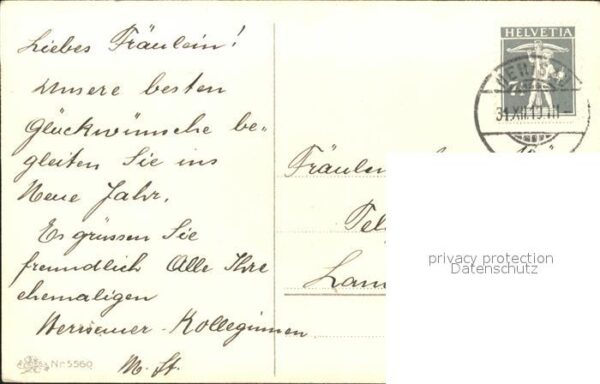 Liebes Fräulein!
Unsere besten
Glückwünsche be-
gleiten Sie ins
Neue Jahr.
Es grüssen Sie
freundlich Alle Ihre
ehemaligen
Kolleginnen
M. St.
Nr. 5560
HELVETIA
7½
31.XII.13.
Fräulein
privacy protection
Datenschutz